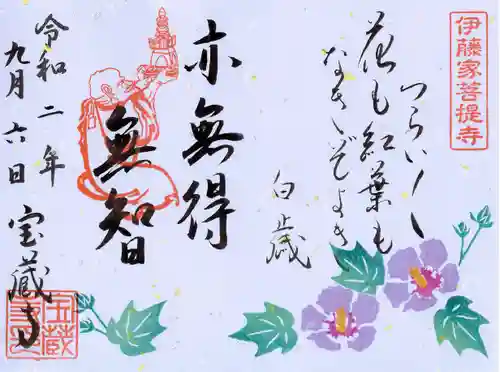 伊藤家菩提寺
つらい〳〵
花も紅葉も
なきぞよき
白歳
亦無得
無智
令和二年
九月六日
宝蔵寺